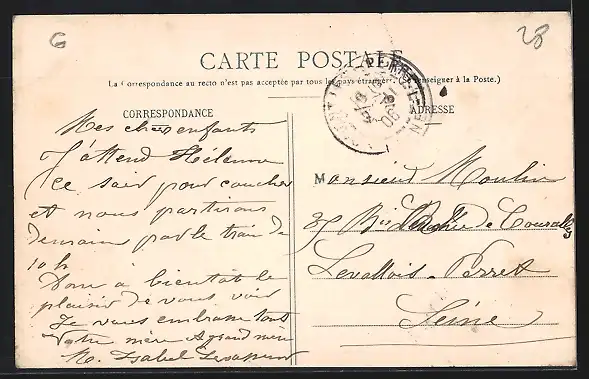 G
28
CARTE POSTALE
La Correspondance au recto n'est pas acceptée par tous les pays étrangers. (Se renseigner à la Poste.)
CORRESPONDANCE
ADRESSE
Mes chers enfants
J'attend Hélenne
ce soir pour coucher
et nous partirons
demain par le train de
10 h
Don a bientôt le
plaisir de vous voir
Je vous embrasse tous
Votre mère & grand mère
Monsieur Moulin
Levallois-Perret
Seine